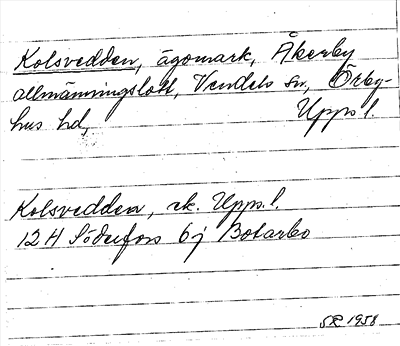 Kolsvedden, ägomark, Åkerby
allmänningslott, Vendels sn, Örby-
hus hd, Upps l.
Kolsvedden, ek. Upps. l.
12 H Söderfors 6 j Botarbo
SR 1958